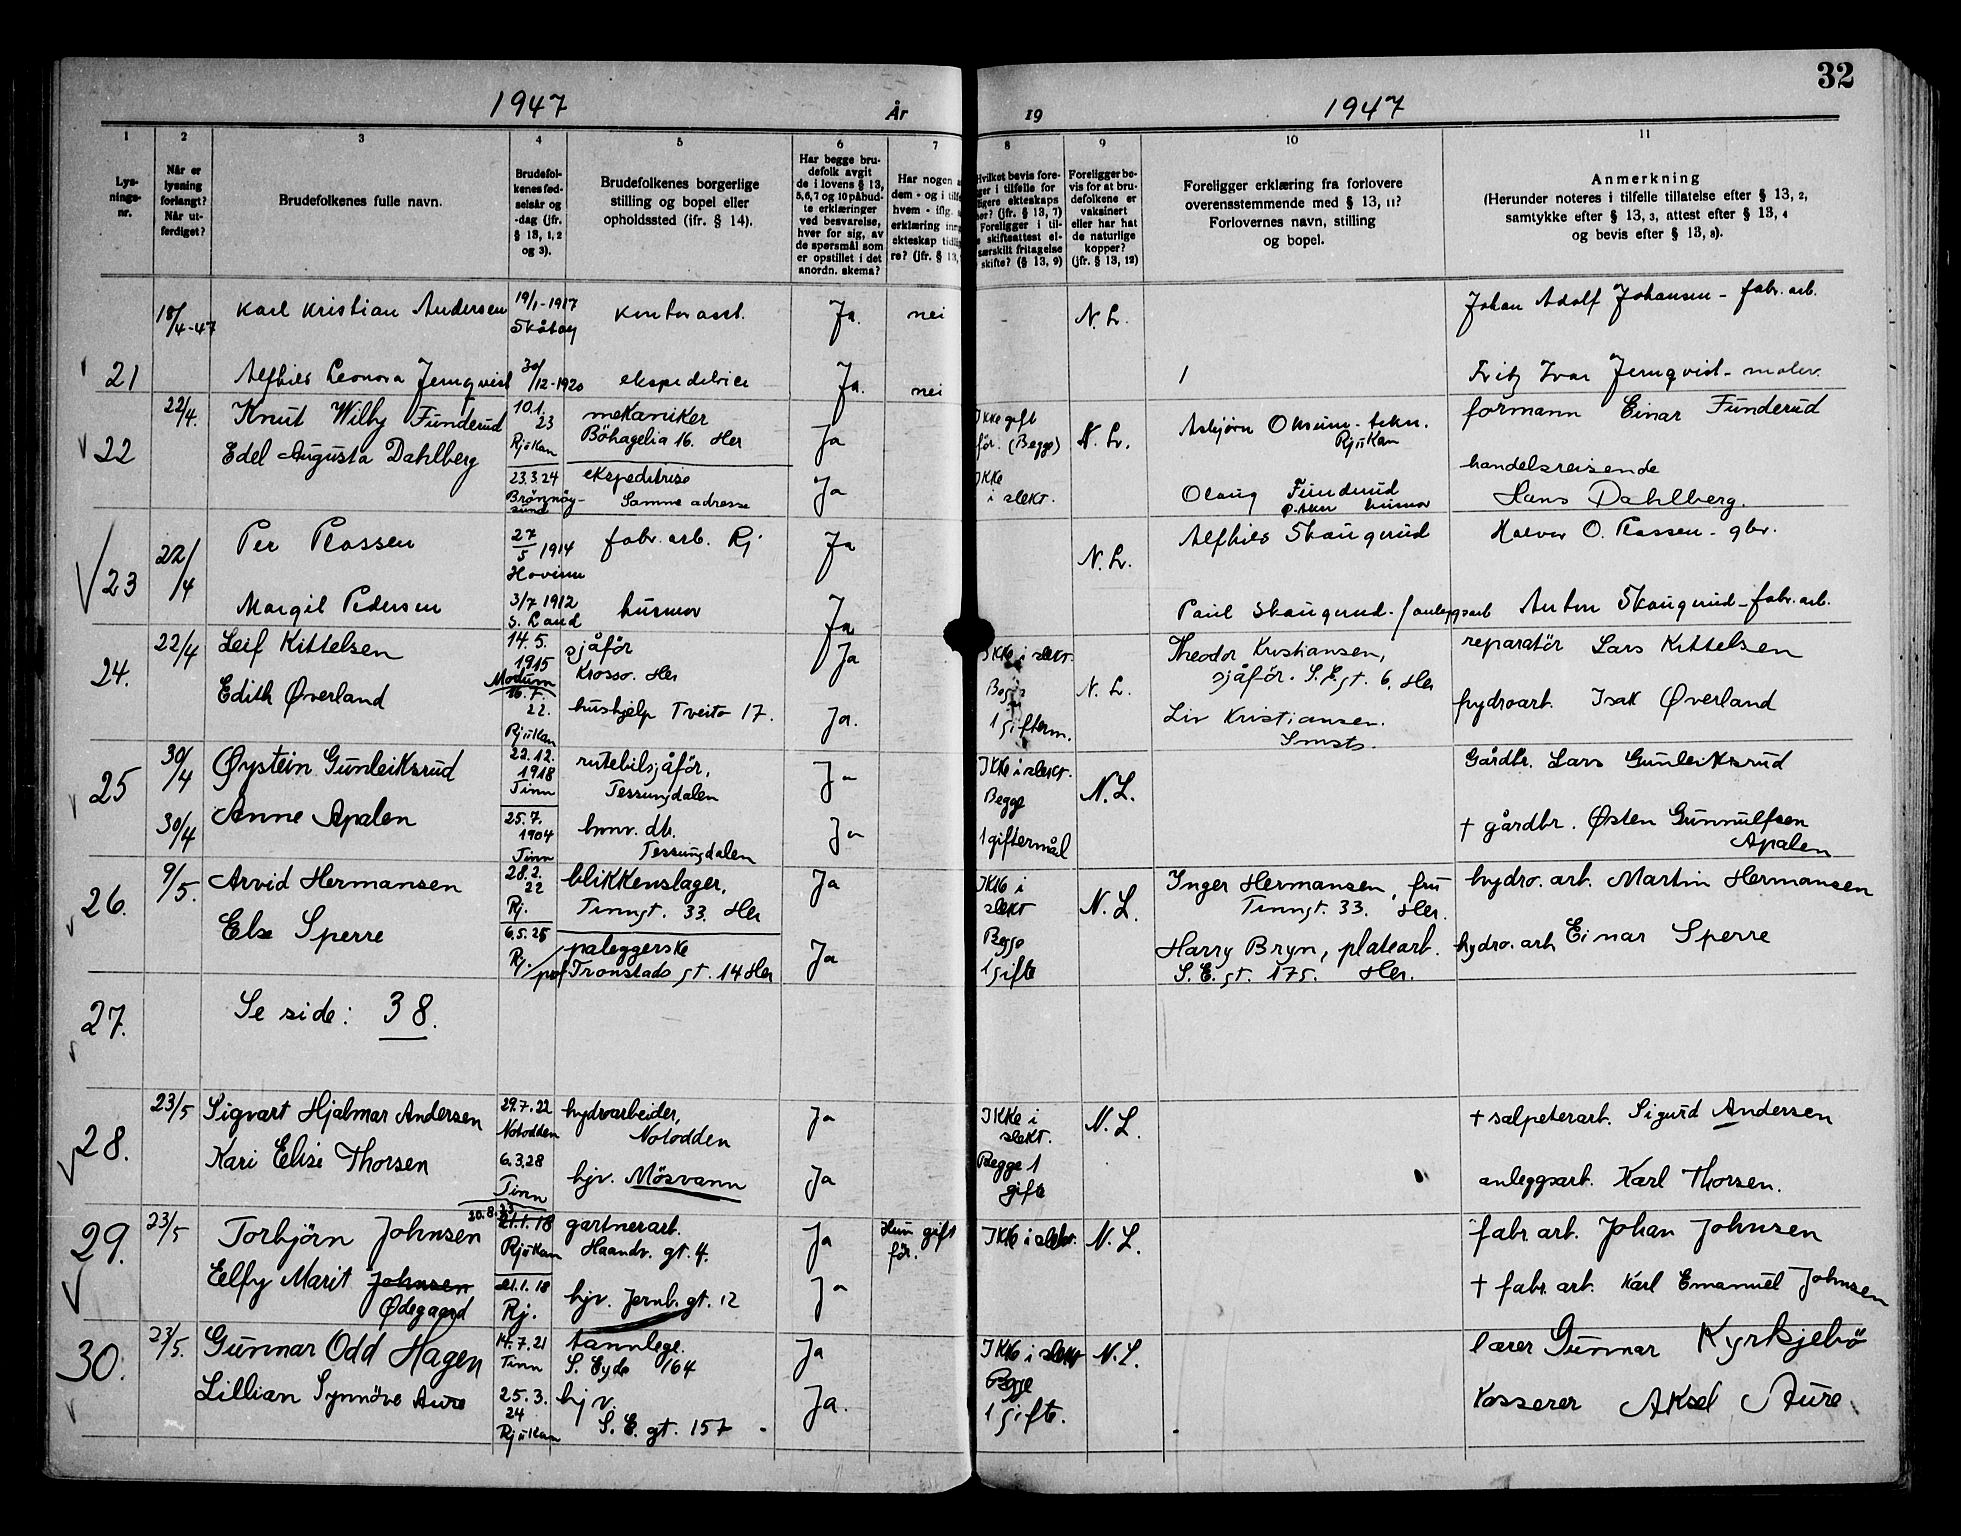 32
1947
År
19
1947
1
2
3
4
5
6
7
8
9
10
11
Lys-
nings-
nr.
Når er
lysning
forlangt?
Når ut-
ferdiget?
Brudefolkenes fulle navn.
Brudefol-
kenes fød-
selsår og
-dag (jfr.
§ 13, 1, 2
og 3).
Brudefolkenes borgerlige
stilling og bopel eller
opholdssted (ifr. § 14).
Har begge bru-
defolk avgit
de i lovens § 13,
5, 6, 7 og 10 påbud-
te erklæringer
ved besvarelse,
hver for sig, av
de spørsmål som
er opstillet i det
anordn. skema?
Har nogen a
dem - og i tilf
hvem - iflg.
erklæring inng
ekteskap tidli
re? (jfr. § 13,
Hvilket bevis fore-
ger i tilfelle for
ligere ekteskaps
er? (jfr. § 13, 7)
Foreligger i til-
skifteattest el-
særskilt fritagelse
skifte? (§ 13, 9)
Foreligger be-
vis for at bru-
defolkene er
vaksinert
eller har hat
de naturlige
kopper?
(jfr. § 13, 12)
Foreligger erklæring fra forlovere
overensstemmende med § 13, 11?
Forlovernes navn, stilling
og bopel.
Anmerkning
(Herunder noteres i tilfelle tillatelse efter § 13, 2,
samtykke efter § 13, 3, attest efter § 13, 4
og bevis efter § 13, 8).
21
18/4-47
Karl Kristian Andersen
19/1-1917
Skåtøy
kontorasst.
Ja.
nei
N. L.
Johan Adolf Johansen - fabr. arb.
Alfhild Leonora Jernqvist
30/12-1920
ekspeditrice
Ja.
nei
Fritz Ivar Jernqvist - maler.
22
22/4.
Knut Wilby Funderud
10.1.
23
Rjukan
mekaniker
Böhagelia 16. Her
Ja
Ikke gift
før. (Begge)
N. L.
Asbjørn Oksum - tekn.
Rjukan
formann Einar Funderud
Edel Augusta Dahlberg
23.3.24
Brönnöy-
sund
ekspeditrise
Samme adresse
Ja
Ikke
i slekt.
Olaug Funderud
husmor
handelsreisende
Hans Dahlberg.
23
22/4
Per Plassen
27/5 1914
Hovin
fabr. arb. Rj.
Ja
N. L.
Alfhild Skaugrud
Halvor O. Plassen - gbr.
Margit Pedersen
3/7 1912
S. Land
husmor
Ja
Paul Skaugrud - anleggsarb
Anton Skaugrud - fabr. arb.
24.
22/4
Leif Kittelsen
14.5.
1915
Modum
sjåför
Krosso. Her
Ja
Ikke i slekt.
Theodor Kristiansen,
sjåför. S. E. gt. 6, Her
reparatör Lars Kittelsen
Edith Øverland
16.7.
22.
Rjukan
hushjelp Tveito 17.
Ja.
Begge
1 gifterm.
N. L.
Liv Kristiansen.
Smsts.
hydroarb. Isak Øverland
25
30/4
Øystein Gunleiksrud
22.12.
1918
Tinn
rutebilsjåför,
Tessungdalen
Ja
Ikke i slekt.
Begge
N. L.
Gårdbr. Lars Gunleiksrud
30/4
Anne Apalen
25.7.
1904
Tinn
hmv. db.
Tessungdalen
Ja
1 giftermål
+ gårdbr. Østen Gunnulfsen
Apalen
26.
9/5.
Arvid Hermansen
28.2.
22
Rj.
blikkenslager,
Tinngt. 33. Her
Ja
Ikke i
slekt
N. L.
Inger Hermansen, fru
Tinngt. 33. Her.
hydro. arb. Martin Hermansen
Else Sperre
6.5.25
Rj.
paleggerske
Tronstads gt. 14 Her
Ja
Begge
1 gifte
Harry Bryn, platearb.
S. E. gt. 175. Her.
hydro. arb. Einar Sperre
27.
Se side: 38.
28.
23/5
Sigvart Hjalmar Andersen
29.7.22
Notodden
hydroarbeider,
Notodden
Ja
Ikke i
slekt.
N. L.
+ salpeterarb. Sigurd Andersen
Kari Elise Thorsen
6.3.28
Tinn
hjv. Mösvann
Ja
Begge 1
gifte
anleggsarb. Karl Thorsen.
29.
23/5
Torbjörn Johnsen
21.1.18
Rjukan
gartnerarb.
Haandv. gt. 4.
Ja
Hun gift
för.
Ikke i slekt.
N. L.
fabr. arb. Johan Johnsen
Elfy Marit Johnsen
Ødegaard
21.1.18
Rj.
hjv. Jernb. gt. 12
Ja
+ fabr. arb. Karl Emanuel Johnsen
30.
23/5.
Gunnar Odd Hagen
14.7.21
Tinn
tannlege.
S. Eyde 164
Ja
Ikke i slekt
N. L.
lærer Gunnar Kyrkjebö
Lillian Synnöve Aure
25.3.
24
Rjukan
hjv.
S. E. gt. 157
Ja.
Begge
1 gifte.
Kasserer Aksel Aure